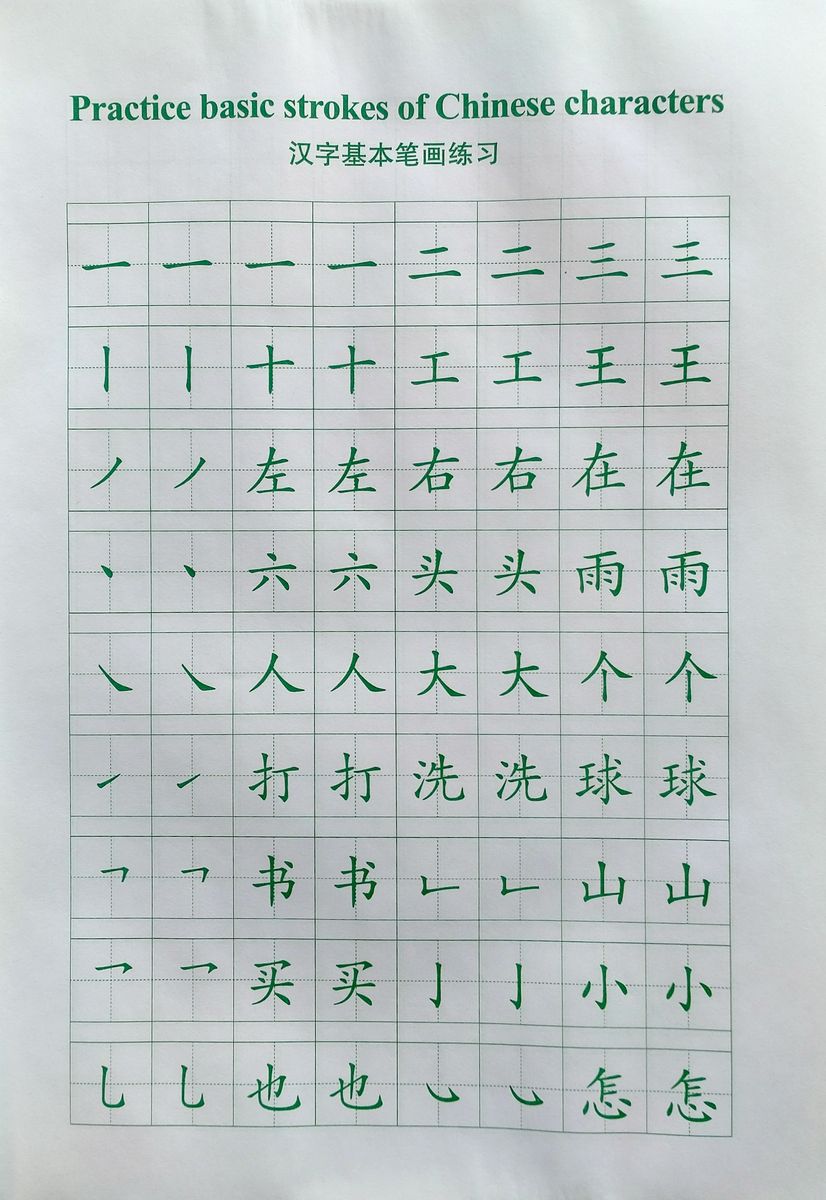 Practice basic strokes of Chinese characters
汉字基本笔画练习
一 一 一 一 二 二 三 三
丨 丨 十 十 工 工 王 王
丿 丿 左 左 右 右 在 在
丶 丶 六 六 头 头 雨 雨
㇏ ㇏ 人 人 大 大 个 个
㇀ ㇀ 打 打 洗 洗 球 球
𠃍 𠃍 书 书 𠃊 𠃊 山 山
乛 乛 买 买 亅 亅 小 小
乚 乚 也 也 ㇃ ㇃ 怎 怎